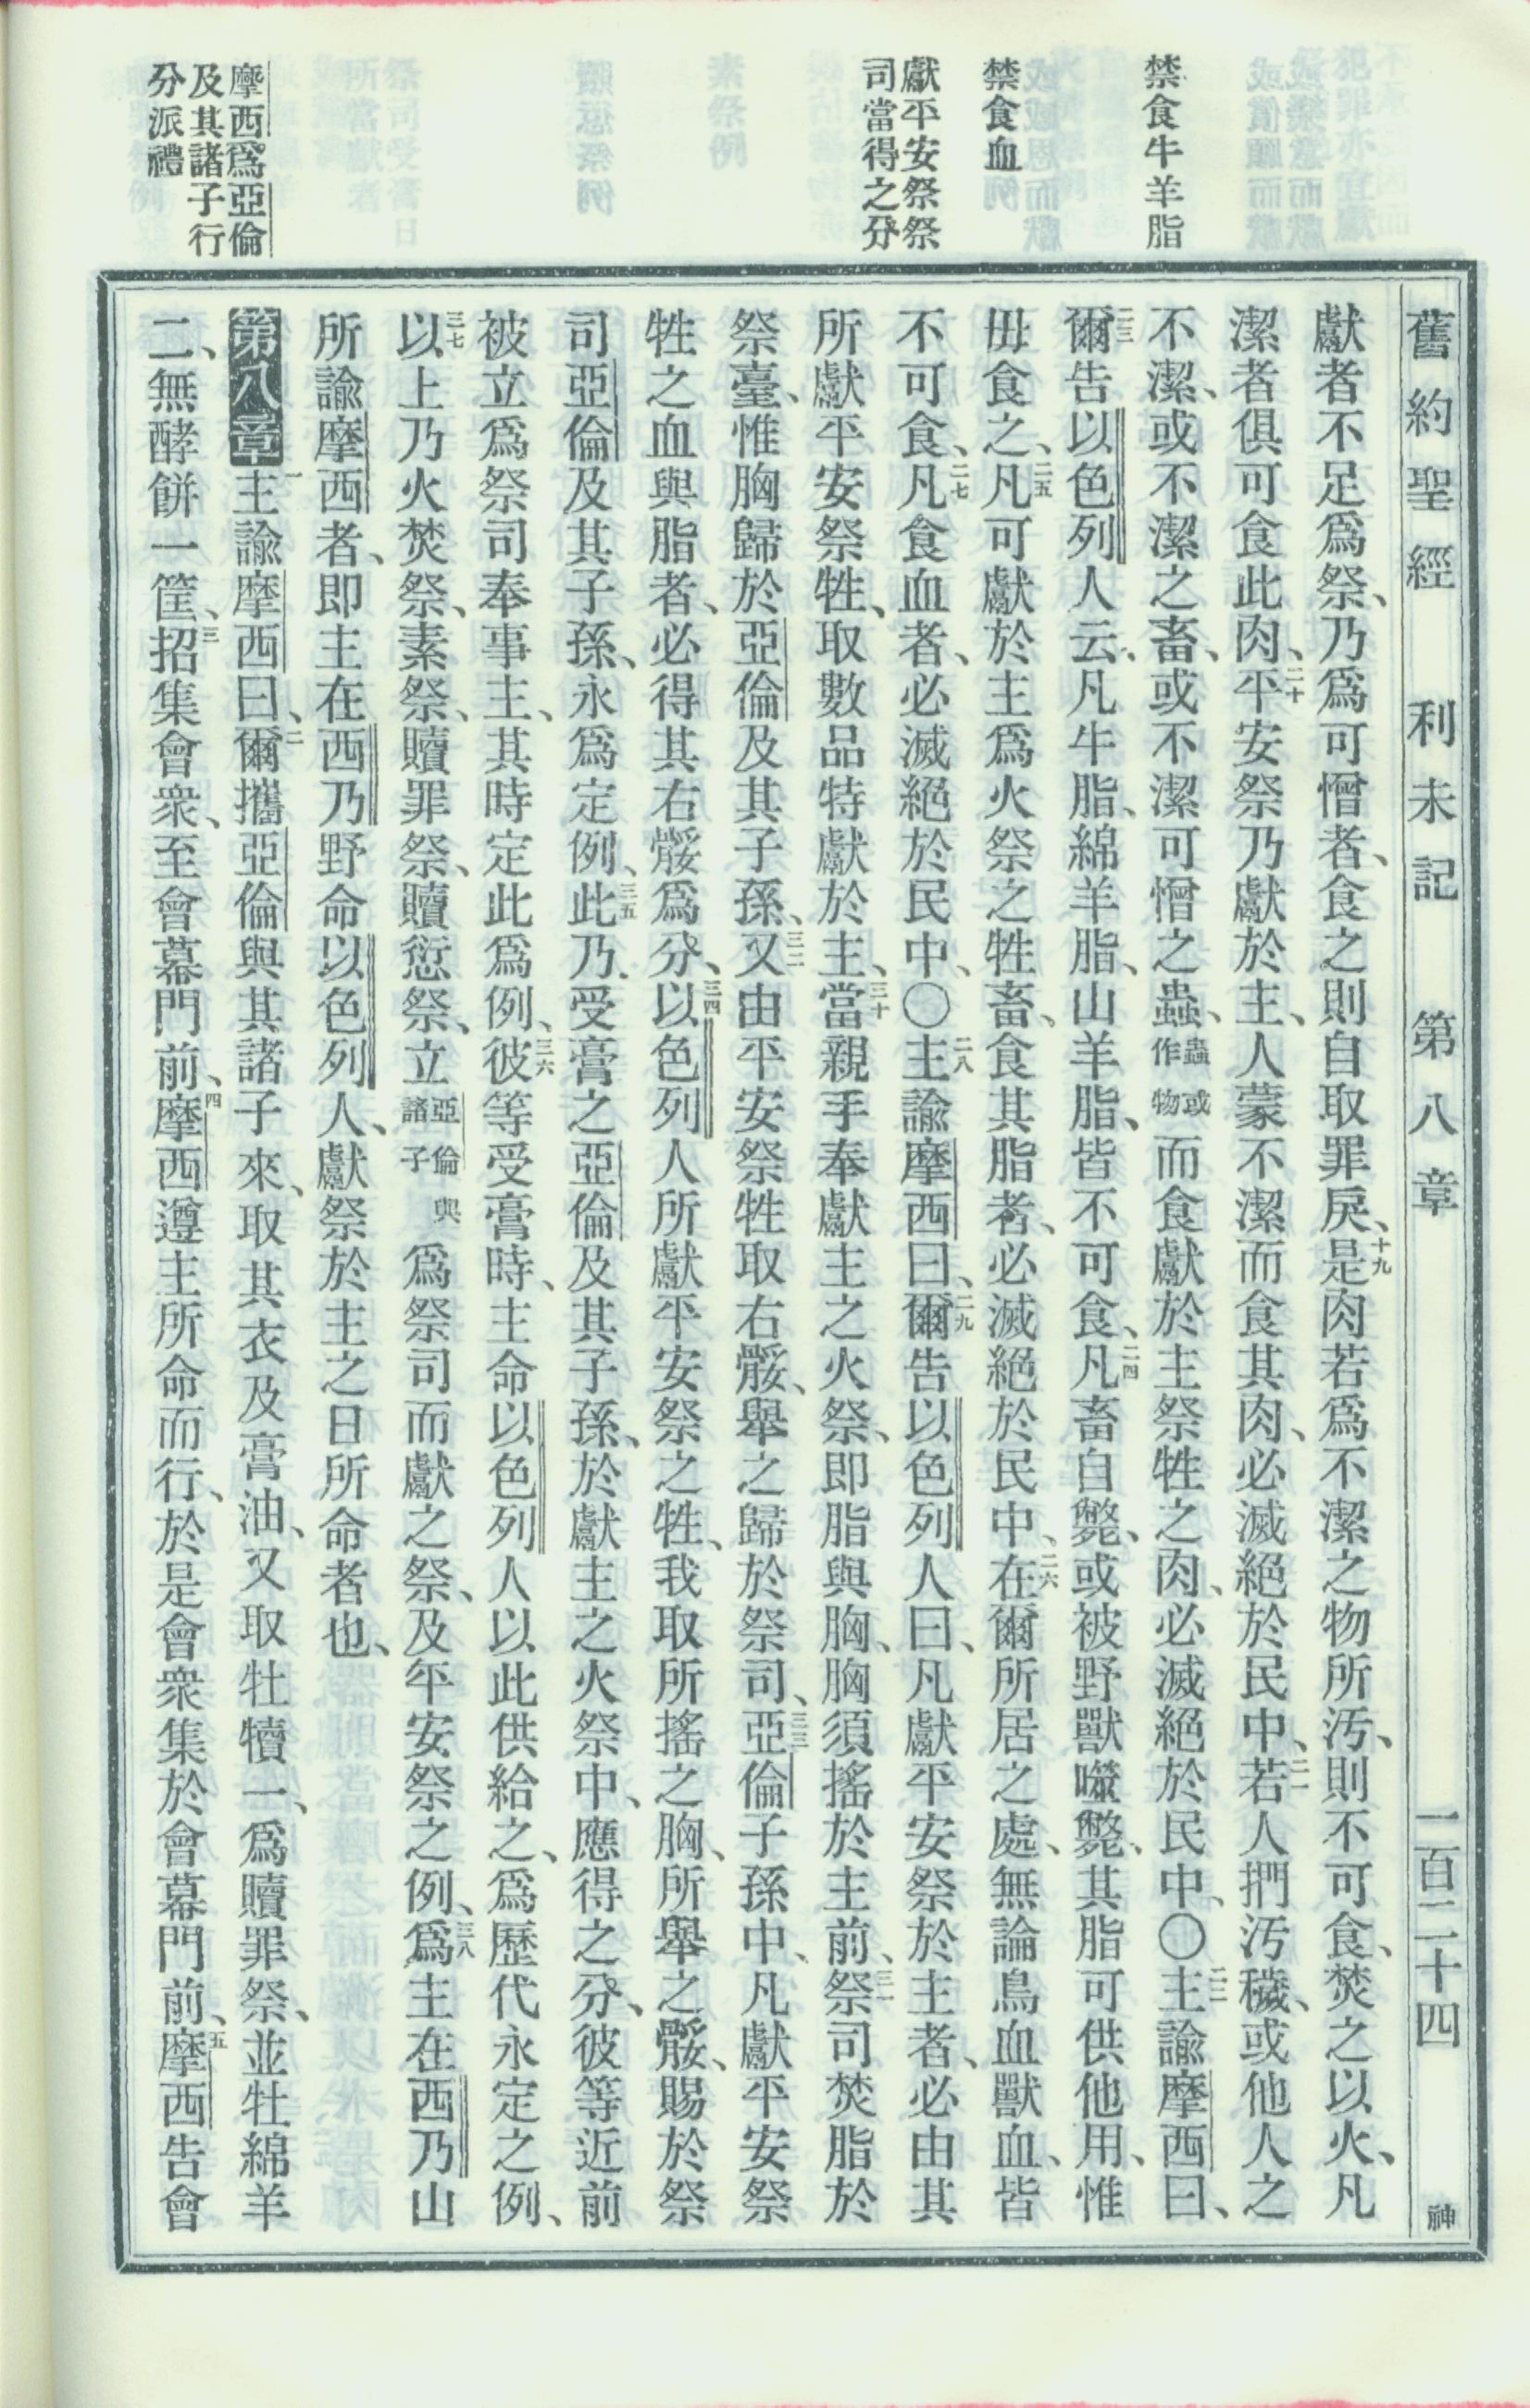 舊約聖經 利未記 第八章 一百二十四 神
禁食牛羊脂
禁食血
獻平安祭祭
司當得之分
摩西爲亞倫
及其諸子行
分派禮
獻者不足爲祭、乃爲可憎者、食之則自取罪戾、十九是肉若爲不潔之物所汚、則不可食、焚之以火、凡
潔者俱可食此肉、二十平安祭乃獻於主、人蒙不潔而食其肉、必滅絕於民中、二一若人捫汚穢、或他人之
不潔、或不潔之畜、或不潔可憎之蟲、蟲或作物而食獻於主祭牲之肉、必滅絕於民中、〇二二主諭摩西曰、
二三爾告以色列人云、凡牛脂、綿羊脂、山羊脂、皆不可食、二四凡畜自斃、或被野獸噬斃、其脂可供他用、惟
毋食之、二五凡可獻於主爲火祭之牲畜、食其脂者、必滅絕於民中、二六在爾所居之處、無論鳥血獸血、皆
不可食、二七凡食血者、必滅絕於民中、〇二八主諭摩西曰、二九爾告以色列人曰、凡獻平安祭於主者、必由其
所獻平安祭牲、取數品特獻於主、三十當親手奉獻主之火祭、即脂與胸、胸須搖於主前、三一祭司焚脂於
祭臺、惟胸歸於亞倫及其子孫、三二又由平安祭牲取右骽、舉之歸於祭司、三三亞倫子孫中、凡獻平安祭
牲之血與脂者、必得其右骽爲分、三四以色列人所獻平安祭之牲、我取所搖之胸、所舉之骽、賜於祭
司亞倫及其子孫、永爲定例、三五此乃受膏之亞倫及其子孫、於獻主之火祭中、應得之分、彼等近前
被立爲祭司奉事主、其時定此爲例、三六彼等受膏時、主命以色列人以此供給之、爲歷代永定之例、
三七以上乃火焚祭、素祭、贖罪祭、贖愆祭、立亞倫與諸子爲祭司而獻之祭、及平安祭之例、三八爲主在西乃山
所諭摩西者、即主在西乃野命以色列人、獻祭於主之日所命者也、
第八章一主諭摩西曰、二爾攜亞倫與其諸子來、取其衣及膏油、又取牡犢一、爲贖罪祭、並牡綿羊
二、無酵餅一筐、三招集會衆、至會幕門前、四摩西遵主所命而行、於是會衆集於會幕門前、五摩西告會